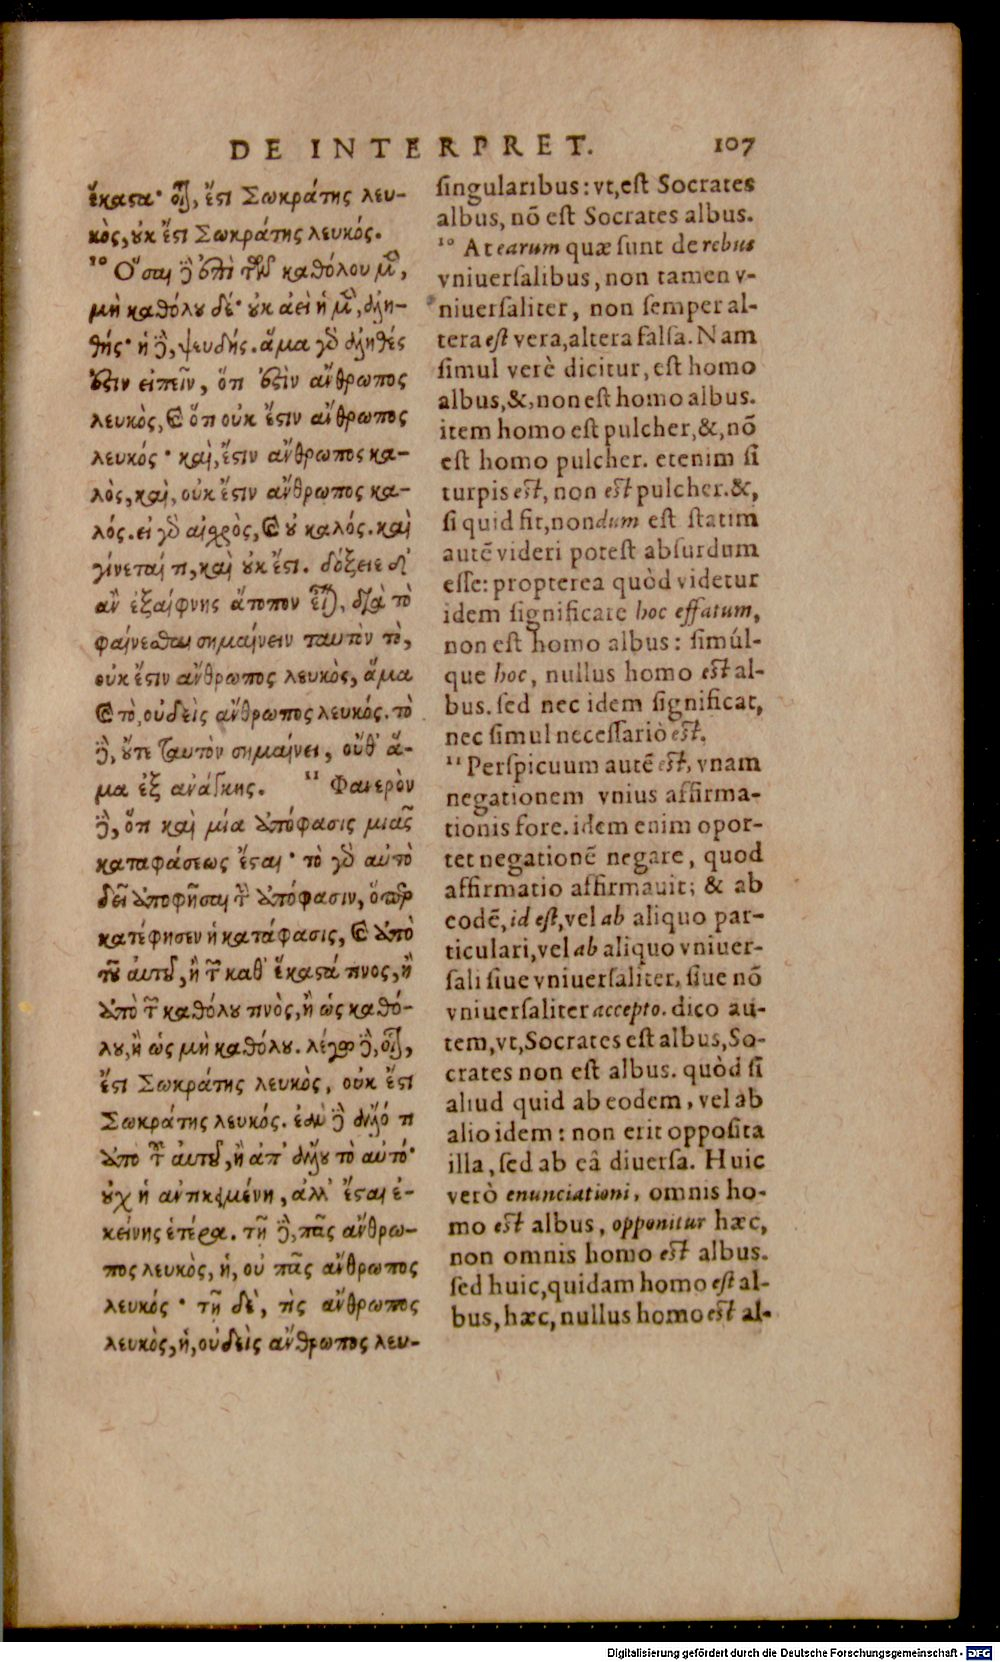 DE INTERPRET. 107
ἕκαστα· οἷον, ἔστι Σωκράτης λευ-
κὸς, οὐκ ἔστι Σωκράτης λευκός.
¹⁰ Ὅσαι δὲ ἐπὶ τῶν καθόλου μὲν,
μὴ καθόλου δέ· οὐκ ἀεὶ ἡ μὲν, ἀλη-
θής· ἡ δὲ, ψευδής. ἅμα γὰρ ἀληθές
ἐστιν εἰπεῖν, ὅτι ἐστὶν ἄνθρωπος
λευκὸς, καὶ ὅτι οὐκ ἔστιν ἄνθρωπος
λευκός· καὶ, ἔστιν ἄνθρωπος κα-
λὸς, καὶ, οὐκ ἔστιν ἄνθρωπος κα-
λός. εἰ γὰρ αἰσχρὸς, καὶ οὐ καλός. καὶ
γίνεταί τι, καὶ οὐκ ἔστι. δόξειε δ'
ἂν ἐξαίφνης ἄτοπον εἶναι, διὰ τὸ
φαίνεσθαι σημαίνειν ταυτὸν τὸ,
οὐκ ἔστιν ἄνθρωπος λευκὸς, ἅμα
καὶ τὸ, οὐδεὶς ἄνθρωπος λευκός. τὸ
δὲ, οὔτε ταυτὸν σημαίνει, οὔθ' ἅ-
μα ἐξ ἀνάγκης. ¹¹ Φανερὸν
δὲ, ὅτι καὶ μία ἀπόφασις μιᾶς
καταφάσεως ἔσται· τὸ γὰρ αὐτὸ
δεῖ ἀποφῆσαι τὴν ἀπόφασιν, ὅπερ
κατέφησεν ἡ κατάφασις, καὶ ἀπὸ
τοῦ αὐτοῦ, ἢ τῶν καθ' ἕκαστά τινος, ἢ
ἀπὸ τῶν καθόλου τινὸς, ἢ ὡς καθό-
λου, ἢ ὡς μὴ καθόλου. λέγω δὲ, οἷον,
ἔστι Σωκράτης λευκὸς, οὐκ ἔστι
Σωκράτης λευκός. ἐὰν δὲ ἄλλό τι
ἀπὸ τοῦ αὐτοῦ, ἢ ἀπ' ἄλλου τὸ αὐτό·
οὐχ ἡ ἀντικειμένη, ἀλλ' ἔσται ἐ-
κείνης ἑτέρα. τῇ δὲ, πᾶς ἄνθρω-
πος λευκὸς, ἡ, οὐ πᾶς ἄνθρωπος
λευκός· τῇ δὲ, τὶς ἄνθρωπος
λευκὸς, ἡ, οὐδεὶς ἄνθρωπος λευ-
singularibus: vt, est Socrates
albus, nõ est Socrates albus.
¹⁰ At earum quæ sunt de rebus
vniuersalibus, non tamen v-
niuersaliter, non semper al-
tera est vera, altera falsa. Nam
simul verè dicitur, est homo
albus, &, non est homo albus.
item homo est pulcher, &, nõ
est homo pulcher. etenim si
turpis est, non est pulcher. &,
si quid fit, nondum est statim
autẽ videri potest absurdum
esse: propterea quòd videtur
idem significare hoc effatum,
non est homo albus: simúl-
que hoc, nullus homo est al-
bus. sed nec idem significat,
nec simul necessariò est.
¹¹ Perspicuum autẽ est, vnam
negationem vnius affirma-
tionis fore. idem enim opor-
tet negationẽ negare, quod
affirmatio affirmauit; & ab
eodẽ, id est, vel ab aliquo par-
ticulari, vel ab aliquo vniuer-
sali siue vniuersaliter, siue nõ
vniuersaliter accepto. dico au-
tem, vt, Socrates est albus, So-
crates non est albus. quòd si
aliud quid ab eodem, vel ab
alio idem: non erit opposita
illa, sed ab eâ diuersa. Huic
verò enunciationi, omnis ho-
mo est albus, opponitur hæc,
non omnis homo est albus.
sed huic, quidam homo est al-
bus, hæc, nullus homo est al-
Digitalisierung gefördert durch die Deutsche Forschungsgemeinschaft - DFG